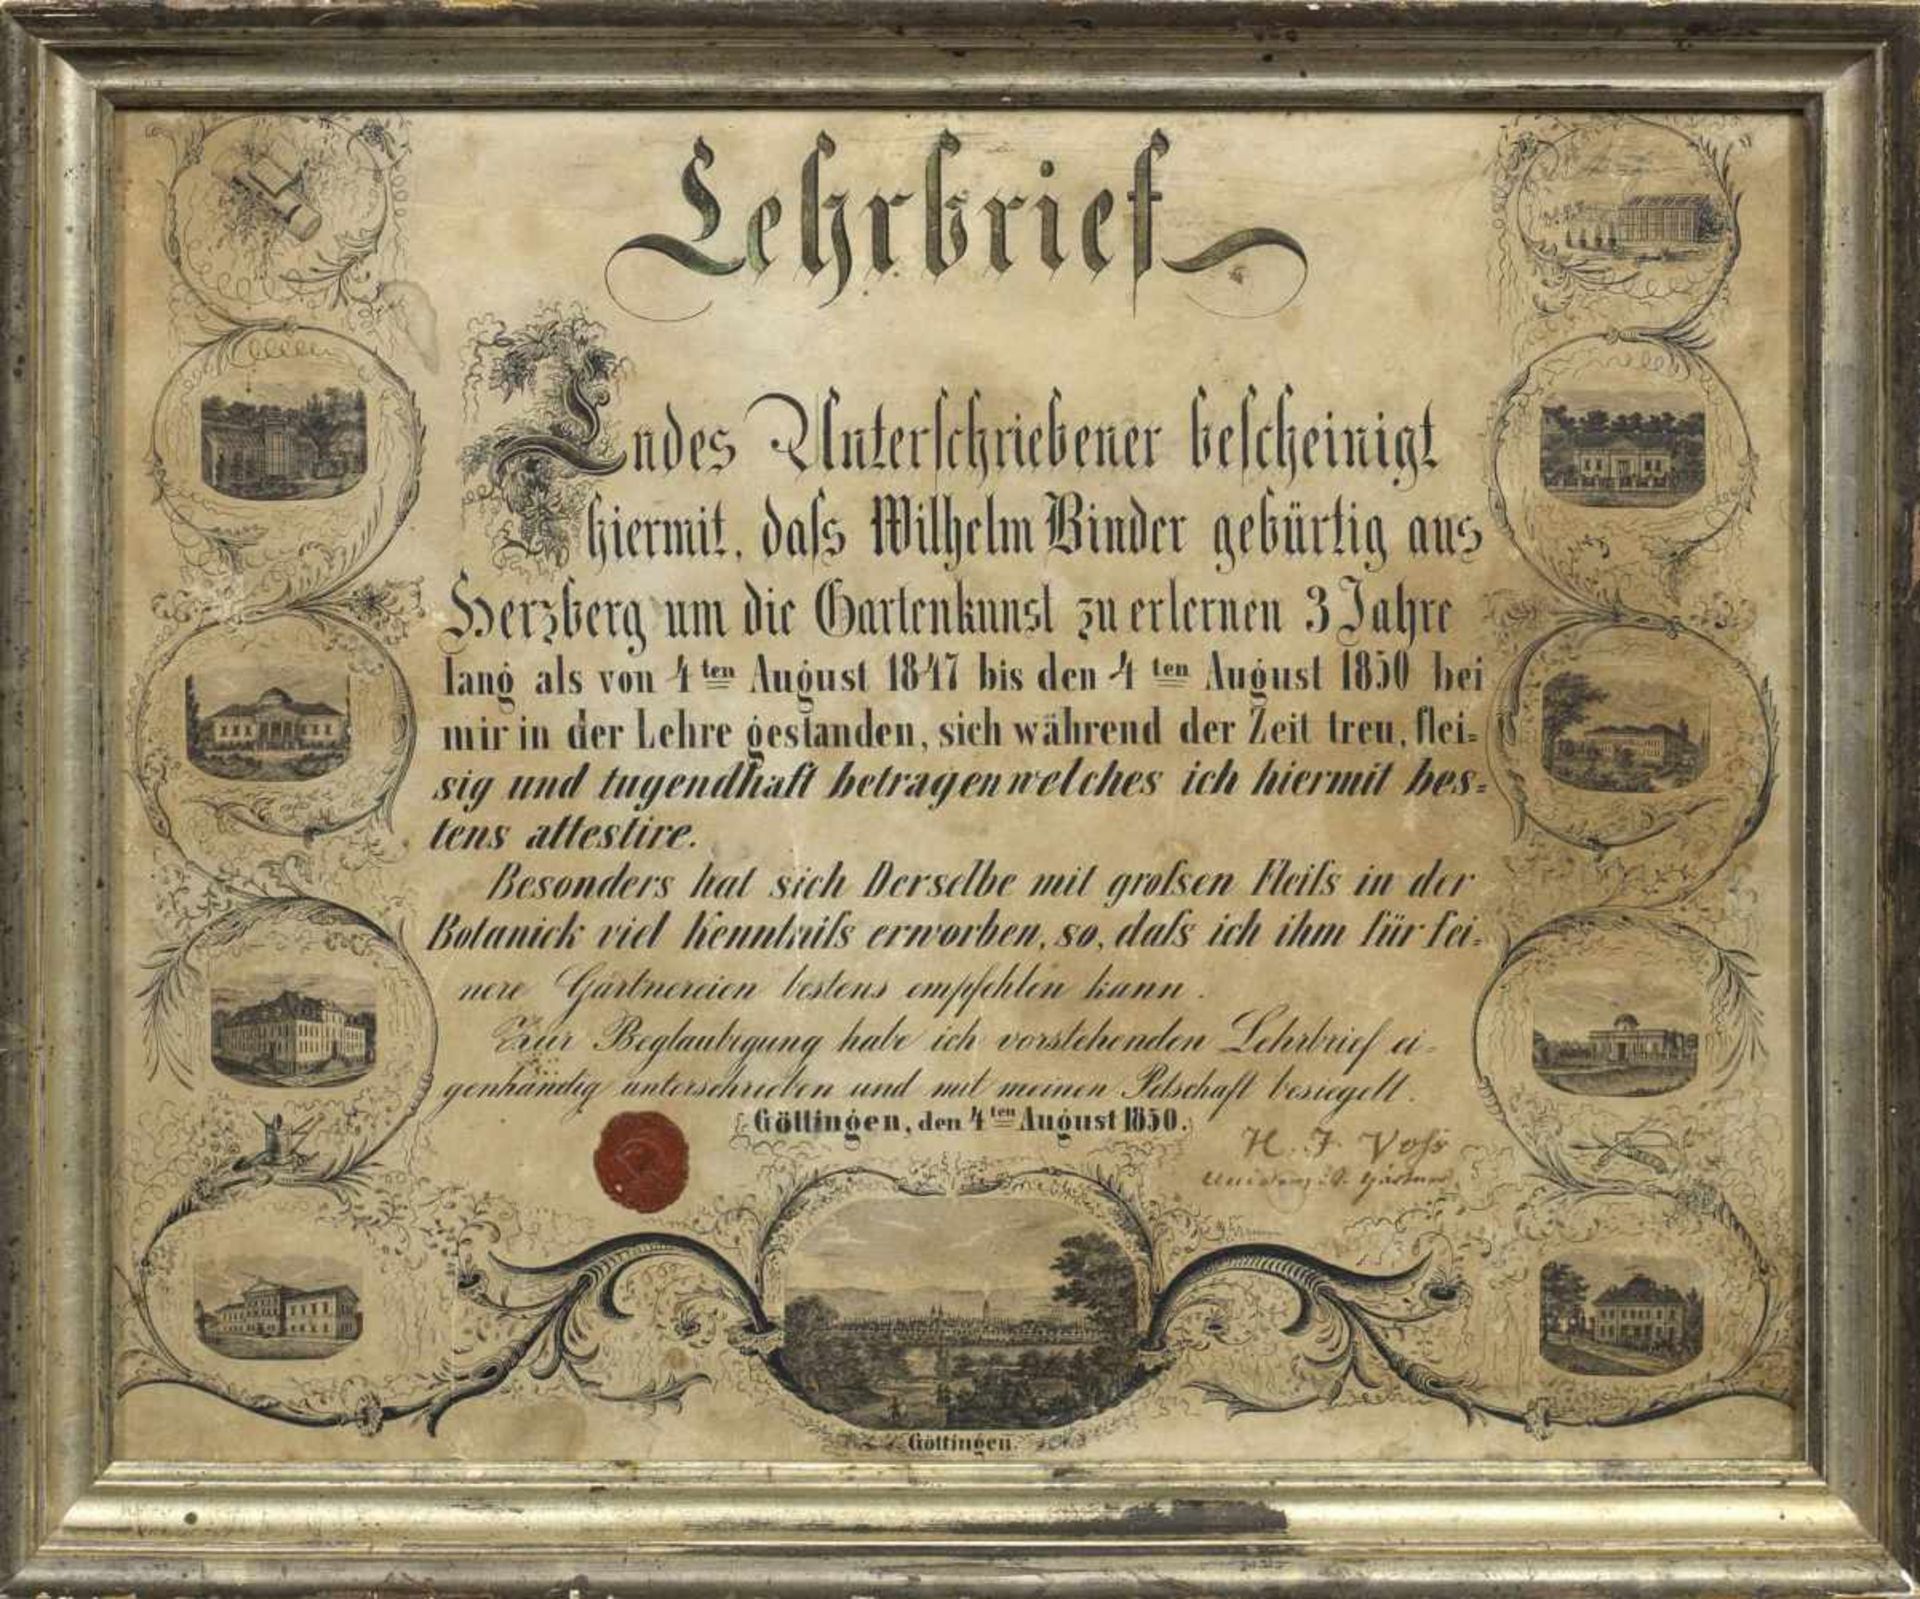 Lehrbrief
Endes Unterschriebener bescheinigt
hiermit, daſs Wilhelm Binder gebürtig aus
Herzberg um die Gartenkunst zu erlernen 3 Jahre
lang als von 4ten August 1847 bis den 4ten August 1850 bei
mir in der Lehre gestanden, sich während der Zeit treu, flei=
sig und tugendhaft betragen welches ich hiermit bes=
tens attestire.
Besonders hat sich Derselbe mit groſsen Fleiſs in der
Botanick viel Kenntniſs erworben, so, daſs ich ihm für fei=
nere Gärtnereien bestens empfehlen kann.
Zur Beglaubigung habe ich vorstehenden Lehrbrief ei=
genhändig unterschrieben und mit meinen Petschaft besiegelt.
Göttingen, den 4ten August 1850.
H. F. Voſs
Gärtner
Göttingen.